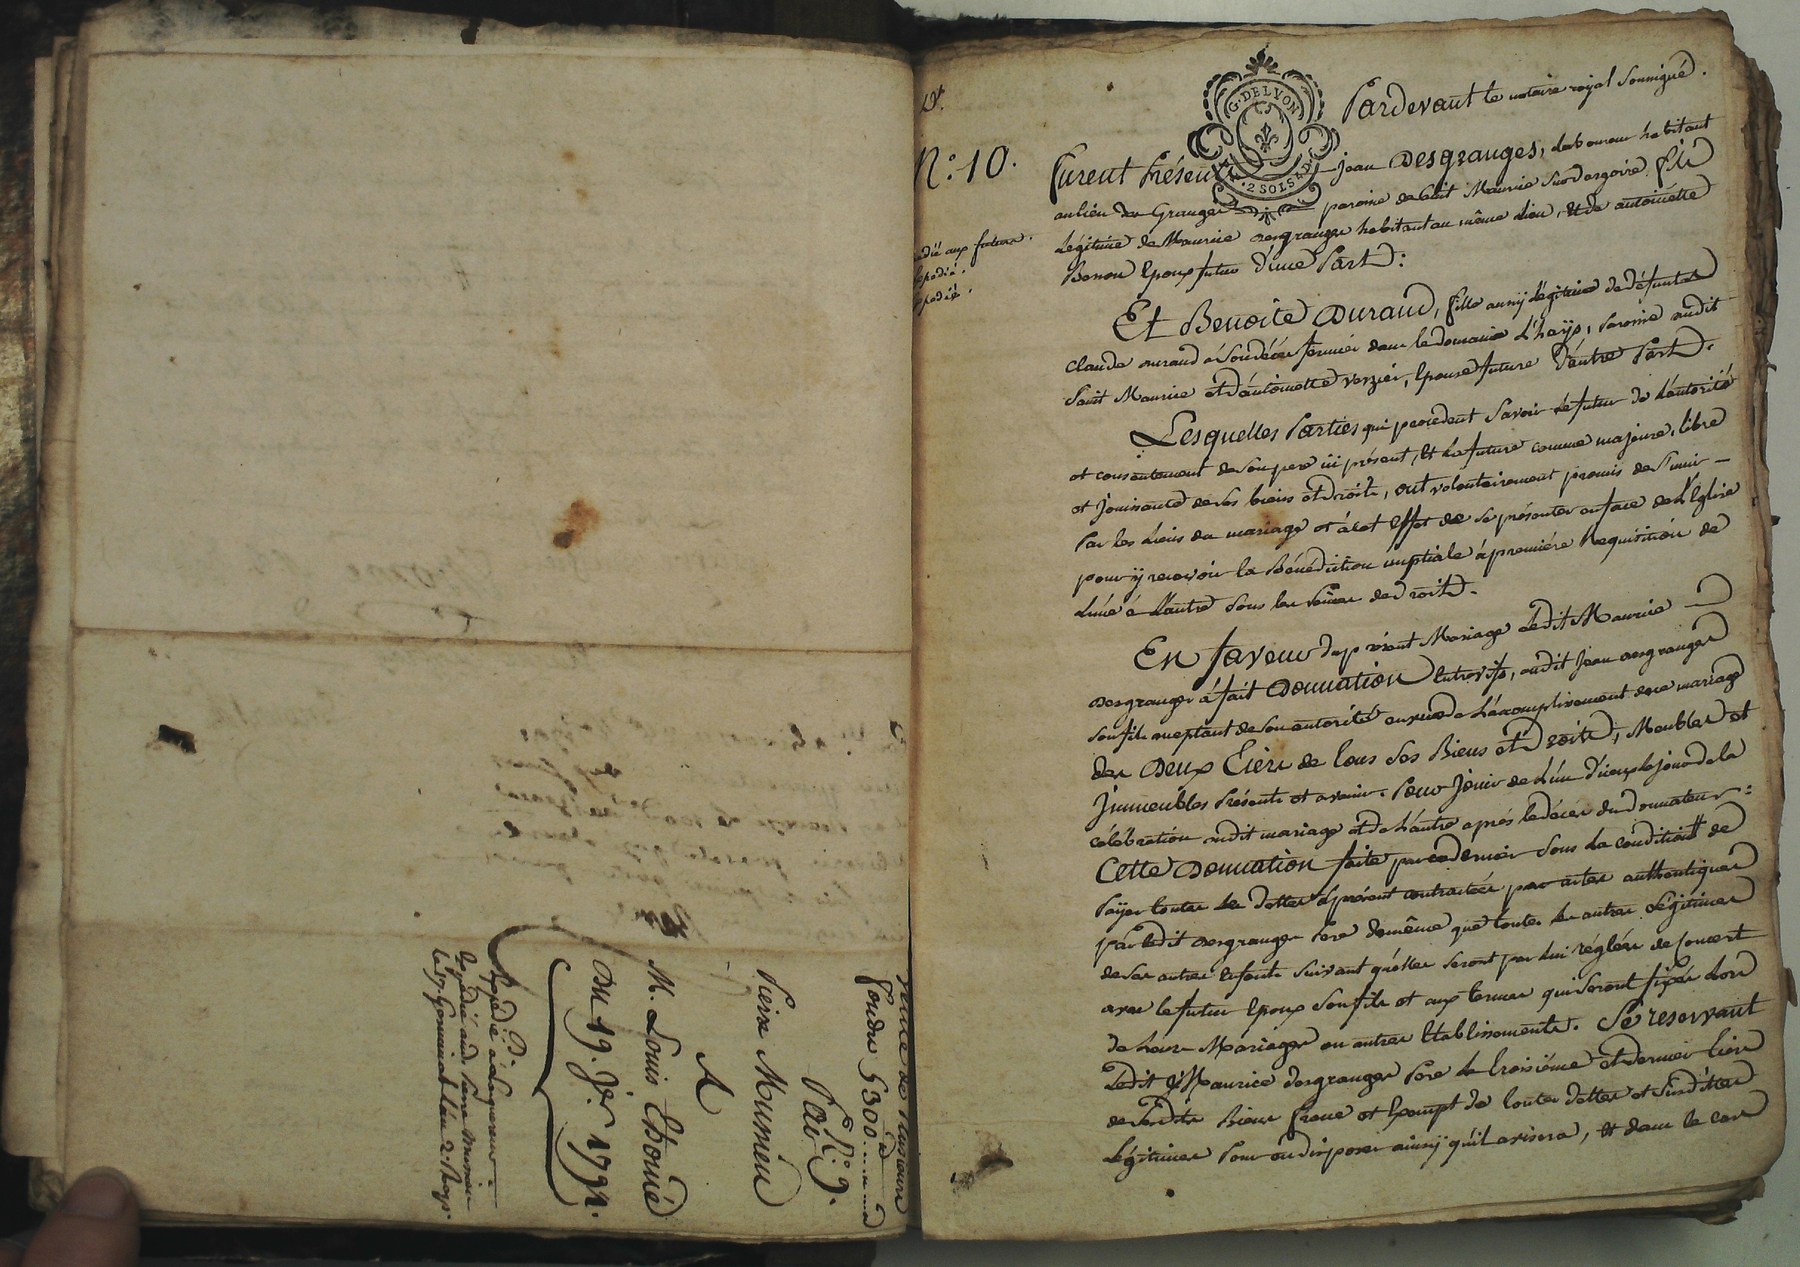 vente de Plusieurs
fonds 5300.
Fo. 9.
Par
Pierre Munieu
A
M. Louis Choué
Du 19. Jer 1791.
D.
N.º 10.
expedié aux futurs.
expedié.
expedié.
G. DE LYON
2 SOLS
Pardevant le notaire royal soussigné.
furent Présents Jean Desgranges, Laboureur habitant
au lieu des Granges paroisse de saint Maurice sur dargoire fils
Légitime de Maurice Desgranges habitant au même Lieu, et de antoinette
Epoux futur d'une Part:
Et Benoite Durand, fille aussy Légitime de défunts
Claude Durand à son décès fermier dans le domaine paroisse audit
saint Maurice et d'antoinette Verzier, Epouse future d'autre Part.
Lesquelles Parties qui procedent savoir Le futur de L'autorité
et consentement de son pere ici présent, Et La future comme majeure, libre
et Jouissante de ses biens et droits, ont volontairement promis de s'unir
Par les Liens du mariage et à cet Effet de se présenter en face de L'Eglise
pour y recevoir la Bénédiction nuptiale à première Requisition de
L'une à L'autre sous les peines de Droit.
En faveur du présent Mariage Ledit Maurice
Desgranges à fait Donnation Entrevifs, audit Jean Desgranges
son fils acceptant de son autorité en vue de L'accomplissement de ce mariage
des Deux Tiers de tous ses Biens et Droits, Meubles et
Jmmeubles Présents et avenir. Pour Jouir de L'un d'iceux le jour de la
célébration audit mariage et de L'autre après le décès du Donnateur:
Cette Donnation faite par ce dernier sous La condition de
Payer toutes les dettes à présent contractées par actes authentiques
par Ledit Desgranges Pere de même que toutes les autres Légitimes
de ses autres Enfants suivant qu'elles seront par Lui réglées de Concert
avec le futur Epoux son fils et aux termes qui seront fixés Lors
de Leurs Mariages ou autres Etablissements. Se reservant
Ledit Maurice Desgranges Pere Le troisième et dernier tiers
de sesdits Biens franc et Exempt de toutes dettes et susdites
Légitimes Pour en disposer ainsy qu'il avisera, Et dans le cas